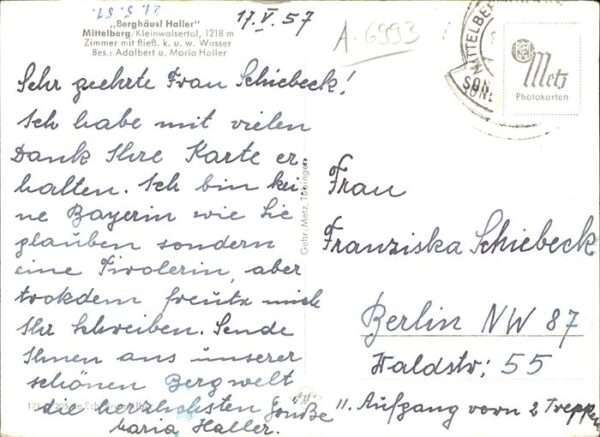 21.5.57
„Berghäusl Haller"
Mittelberg/Kleinwalsertal, 1218 m
Zimmer mit fließ. k. u. w. Wasser
Bes.: Adalbert u. Maria Haller
17.V.57
A-6993
MITTELBERG
Metz
Photokarten
Sehr geehrte Frau Schiebeck!
Ich habe mit vielen
Dank Ihre Karte er
halten. Ich bin kei
ne Bayerin wie Sie
glauben sondern
eine Tirolerin, aber
trotzdem freutx mich
Ihr Schreiben. Sende
Ihnen aus unserer
schönen Bergwelt
die herzlichsten Grüße
Maria Haller.
Gebr. Metz, Tübingen
Frau
Franziska Schiebeck
Berlin NW 87
Waldstr; 55
11. Aufgang vorn 2 Treppen